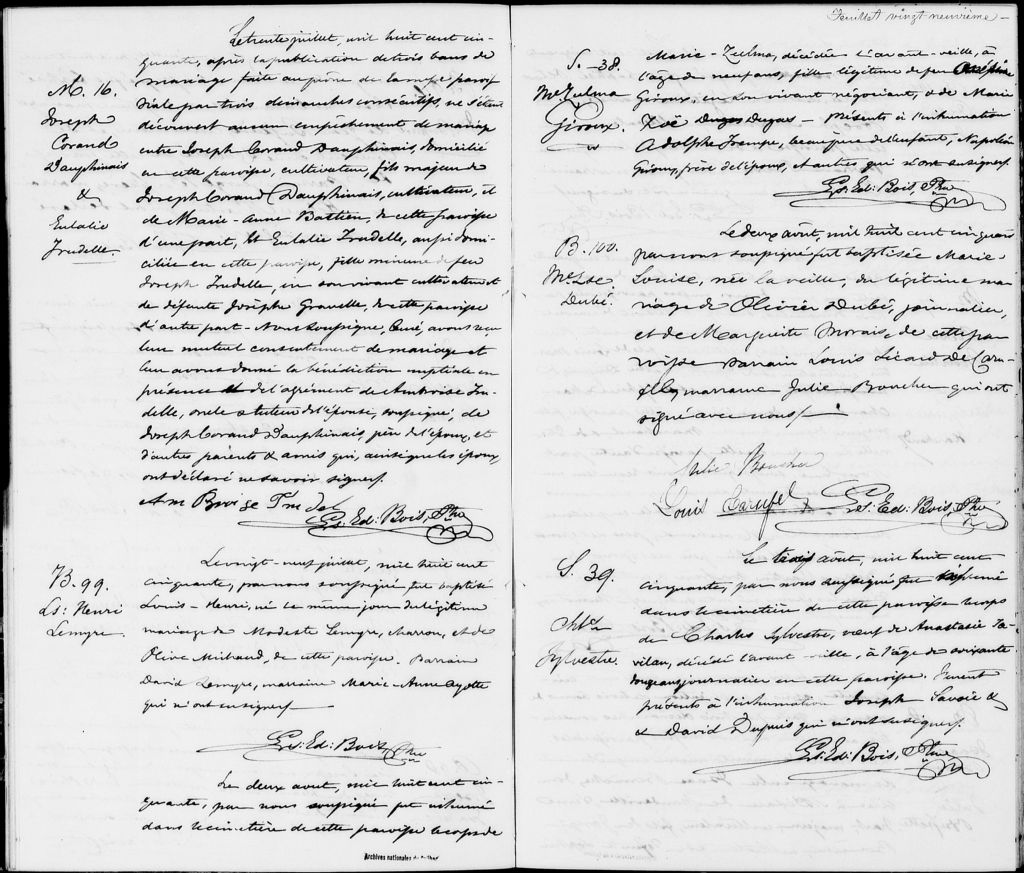 M. 16.
Joseph
Corand
Dauphinais
&
Eulalie
Trudelle.
Le trente juillet, mil huit cent cin-
quante, après la publication de trois bans de
mariage faite au prône de la messe parois-
siale par trois dimanches consécutifs, ne s'étant
découvert aucun empêchement de mariage
entre Joseph Corand Dauphinais, domicilié
en cette paroisse, cultivateur, fils majeur de
Joseph Corand Dauphinais, cultivateur, et
de Marie-Anne Bastien, de cette paroisse
d'une part, Et Eulalie Trudelle, aussi domi-
ciliée en cette paroisse, fille mineure de feu
Joseph Trudelle, en son vivant cultivateur et
de défunte Josephe Gravelle, de cette paroisse
d'autre part. Nous soussigné, Curé, avons reçu
leur mutuel consentement de mariage et
leur avons donné la bénédiction nuptiale en
présence et de l'agrément de Ambroise Tru-
delle, oncle & tuteur de l'épouse, soussigné, de
Joseph Corand Dauphinais, père de l'époux, et
d'autres parents & amis qui, ainsi que les époux,
ont déclaré ne savoir signer.
Ls: Ed: Bois, Ptre
B. 99.
Ls: Henri
Lemyre.
Le vingt-neuf juillet, mil huit cent
cinquante, par nous soussigné fut baptisé
Louis-Henri, né le même jour du légitime
mariage de Modeste Lemyre, charron, et de
Olive Michaud, de cette paroisse. Parrain
David Lemyre, marraine Marie-Anne Ayotte
qui n'ont su signer.
Ls: Ed: Bois, Ptre
Le deux août, mil huit cent cin-
quante, par nous soussigné fut inhumé
dans le cimetière de cette paroisse le corps de
Archives nationales du Québec
Feuillet vingt neuvième
S.-38.
Mie Zulma
Giroux.
Marie-Zulma, décédée l'avant-veille, à
l'âge de neuf ans, fille légitime de feu
Giroux, en son vivant négociant, & de Marie
Zoë Dugas - Présents à l'inhumation
Adolphe, beau père de l'enfant, Napoléon
Giroux, frère de, et autres qui n'ont su signer.
Ls: Ed: Bois, Ptre
B. 100.
Mie Lse
Dubé.
Le deux août, mil huit cent cinquante
par nous soussigné fut baptisée Marie-
Louise, née la veille, du légitime ma-
riage de Olivier Dubé, journalier,
et de Marguerite Morais, de cette pa-
roisse. Parrain Louis Sicard De Car-
ufel, marraine Julie Boucher qui ont
signé avec nous.
Julie Boucher
Louis Carufel
Ls: Ed: Bois, Ptre
S. 39.
Chles
Sylvestre.
Le trois août, mil huit cent
cinquante, par nous soussigné fut inhumé
dans le cimetière de cette paroisse le corps
de Charles Sylvestre, veuf de Anastasie Ga-
vilan, décédé l'avant veille, à l'âge de soixante
douze ans, journalier en cette paroisse. Furent
présents à l'inhumation Joseph Savoie &
& David Dupuis qui n'ont su signer.
Ls: Ed: Bois, Ptre